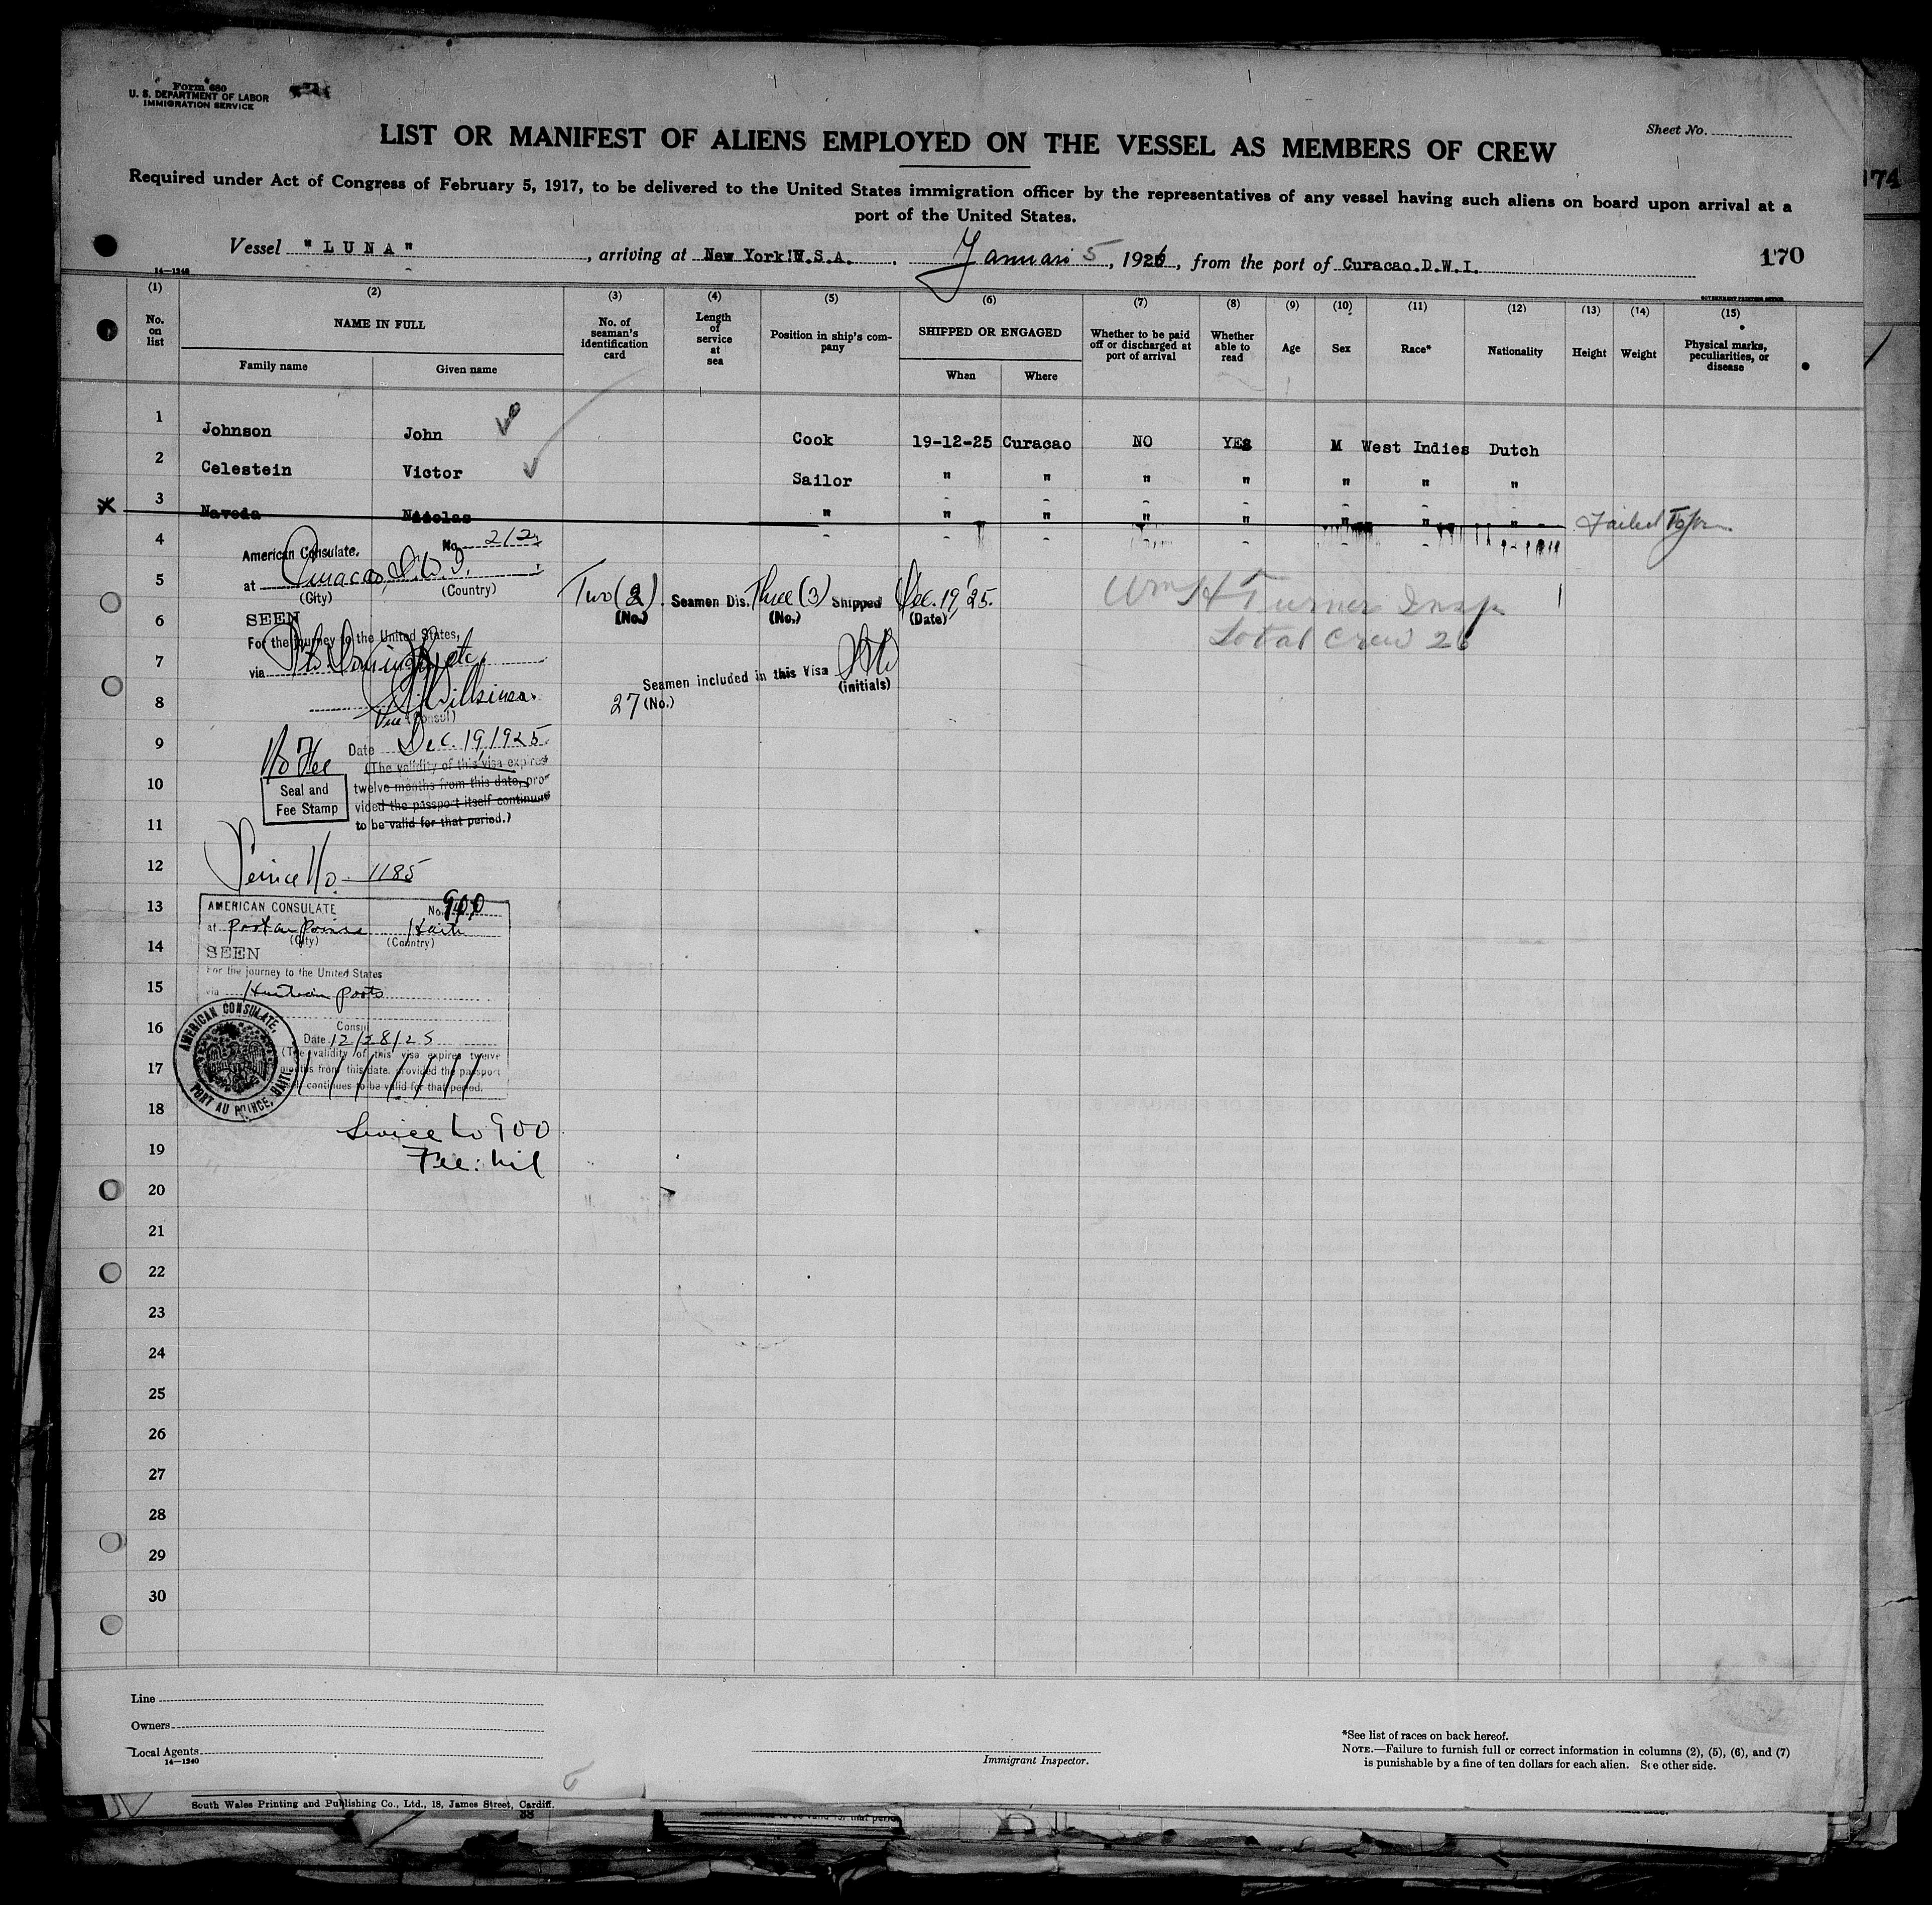 Form 680
U. S. DEPARTMENT OF LABOR
IMMIGRATION SERVICE
Sheet No.
LIST OR MANIFEST OF ALIENS EMPLOYED ON THE VESSEL AS MEMBERS OF CREW
Required under Act of Congress of February 5, 1917, to be delivered to the United States immigration officer by the representatives of any vessel having such aliens on board upon arrival at a
port of the United States.
174
Vessel "LUNA", arriving at New York U.S.A. Januari 5, 1926, from the port of Curacao.D.W.I.
170
14—1240
GOVERNMENT PRINTING OFFICE
(1) (2) (3) (4) (5) (6) (7) (8) (9) (10) (11) (12) (13) (14) (15)
No. on list
NAME IN FULL
Family name
Given name
No. of seaman's identification card
Length of service at sea
Position in ship's company
SHIPPED OR ENGAGED
When
Where
Whether to be paid off or discharged at port of arrival
Whether able to read
Age
Sex
Race*
Nationality
Height
Weight
Physical marks, peculiarities, or disease
1 Johnson John Cook 19-12-25 Curacao NO YES M West Indies Dutch
2 Celestein Victor Sailor " " " " " " "
3 Naveda Nicolas " " " " " " " " Failed To Join
4
American Consulate. No. 212
5
at Curacao, D.W.I.
(City) (Country)
Two (2) Seamen Dis. Three (3) Shipped Dec. 19, '25.
(No.) (No.) (Date)
Wm H Turner Insp
6
SEEN
For the journey to the United States,
Total Crew 26
7
via Sto. Domingo, etc.
Seamen included in this Visa
(initials)
8
27 (No.)
Vice (Consul)
9
Date Dec. 19, 1925.
No Fee
(The validity of this visa expires
10
Seal and
Fee Stamp
twelve months from this date, pro-
vided the passport itself continues
11
to be valid for that period.)
12
Service No. 1185
13
AMERICAN CONSULATE No. 900
at Port au Prince Haiti
(City) (Country)
14
SEEN
For the journey to the United States
15
via Haitian ports
16
Consul
Date 12/28/25
(The validity of this visa expires twelve
17
months from this date, provided the passport
continues to be valid for that period.
AMERICAN CONSULATE,
PORT AU PRINCE, HAITI
18
Service No 900
19
Fee: nil
20
21
22
23
24
25
26
27
28
29
30
Line
Owners
Local Agents
14—1240
Immigrant Inspector.
*See list of races on back hereof.
NOTE.—Failure to furnish full or correct information in columns (2), (5), (6), and (7)
is punishable by a fine of ten dollars for each alien. See other side.
South Wales Printing and Publishing Co., Ltd., 18, James Street, Cardiff.
38